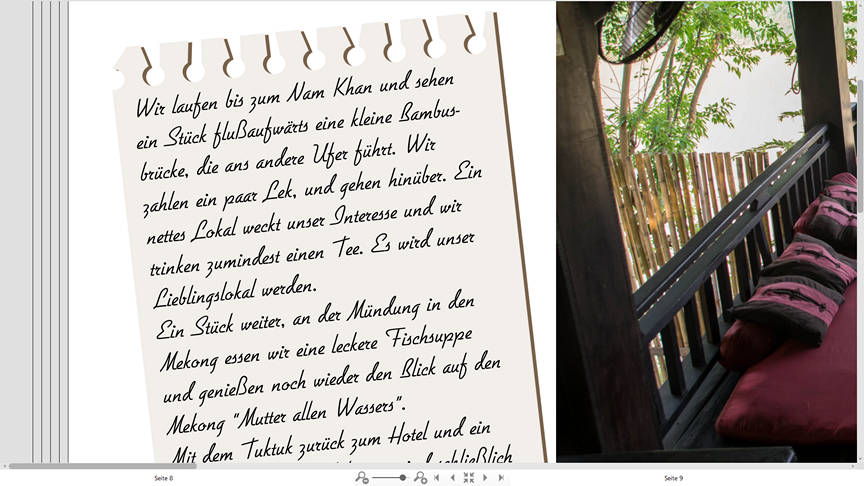 Wir laufen bis zum Nam Khan und sehen
ein Stück flußaufwärts eine kleine Bambus-
brücke, die ans andere Ufer führt. Wir
zahlen ein paar Lek, und gehen hinüber. Ein
nettes Lokal weckt unser Interesse und wir
trinken zumindest einen Tee. Es wird unser
Lieblingslokal werden.
Ein Stück weiter, an der Mündung in den
Mekong essen wir eine leckere Fischsuppe
und genießen noch wieder den Blick auf den
Mekong "Mutter allen Wassers".
Mit dem Tuktuk zurück zum Hotel und ein
schließlich
Seite 8
Seite 9